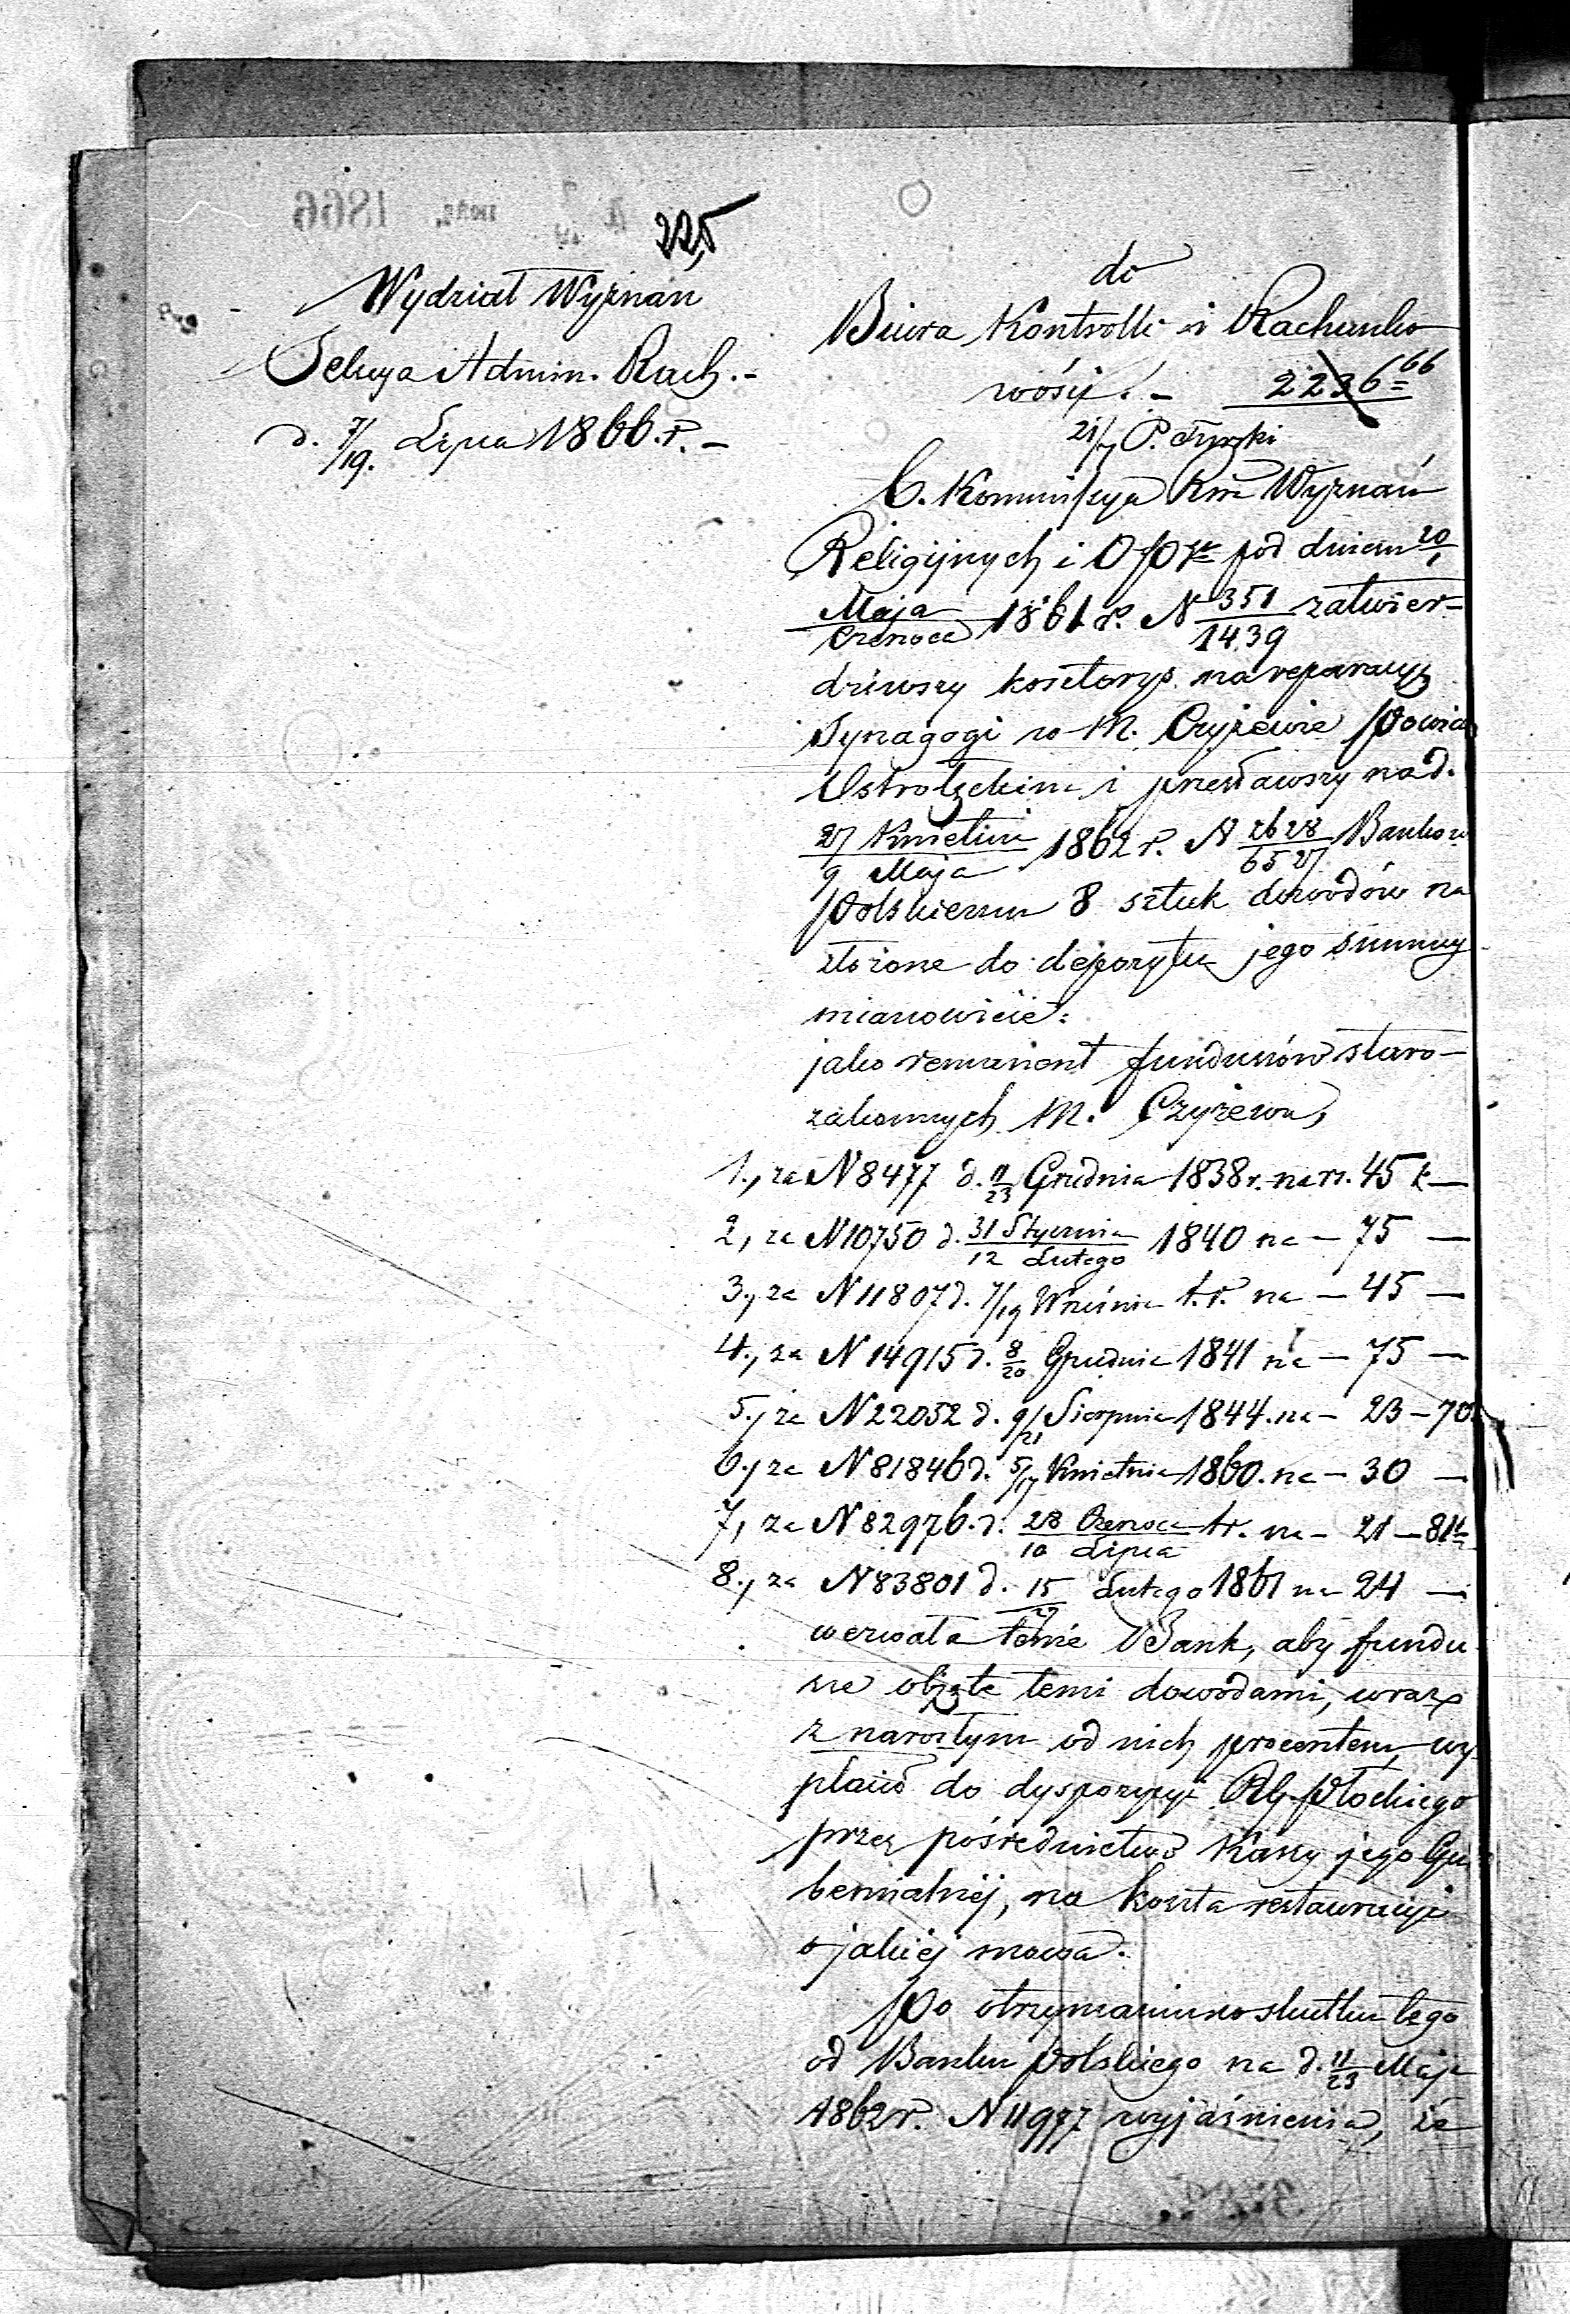 225
Wydział Wyznan
Sekcya Admin. Rach. -
d. 7/19. Lipca 1866.r. -
do
Biura Kontrolli i Rachunko
wości. - 2236 66
21/7 P.
C. Kommissya Rzą Wyznań
Religijnych i O P. pod dniem 20/1
Maja/Czerwca 1861 r. N 351/1439 zatwier-
dziwszy kosztorys na reparacyę
Synagogi w M. Czyżewie Powiecie
Ostrołęckim i przesławszy na d.
27 Kwietnia/9 Maja 1862 r. N 2628/6527 Bankow
Polskiemu 8 sztuk dowodów na
złożone do depozytu jego summy
mianowicie:
jako remanent funduszów staro-
zakonnych M. Czyżewa,
1., za N 8477 d. 11/23 Grudnia 1838 r. na rs. 45 k -
2, za N 10750 d. 31 Stycznia/12 Lutego 1840 na - 75 -
3., za N 11807 d. 7/19 Września t. r. na - 45 -
4., za N 14915 d. 8/20 Grudnia 1841 na - 75 -
5., za N 22052 d. 9/21 Sierpnia 1844. na - 23 - 70
6., za N 81846 d. 5/17 Kwietnia 1860. na - 30 -
7, za N 82976. d. 28 Czerwca/10 Lipca t.r. na - 21 - 81
8., za N 83801 d. 15/27 Lutego 1861 na 24 -
wezwała tenże Bank, aby fundu
sze objęte temi dowodami, wraz
z narosłym od nich procentem, wy
płacił do dyspozycyi RG. Płockiego
przez pośrednictwo Kassy jego Gu
bernialnej, na koszta restauracyi
o jakiej mowa.
Po otrzymaniu w skutku tego
od Banku Polskiego na d. 11/23 Maja
1862 r. N 11997 wyjaśnienia, że